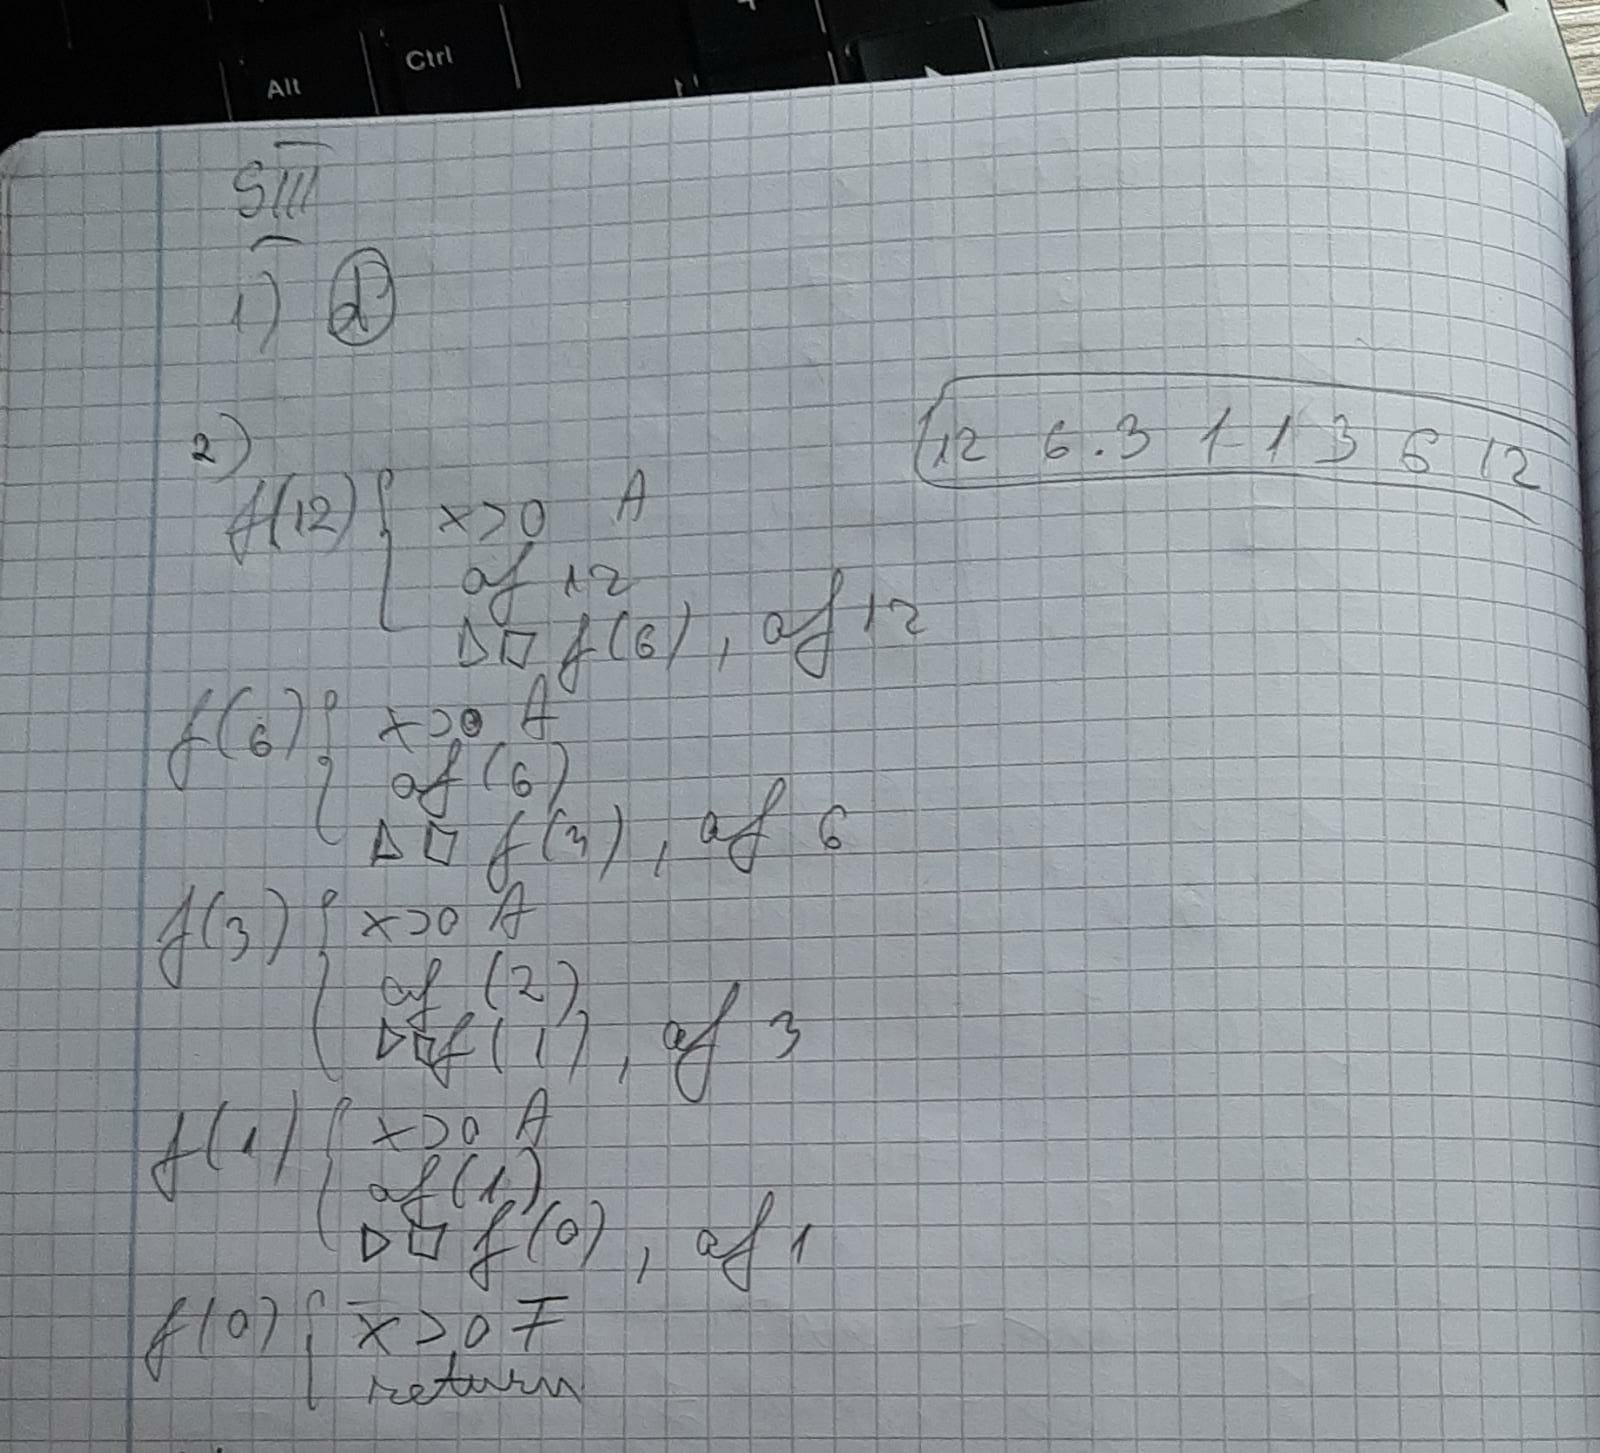 Alt Ctrl
SIII
1) d
12 6 . 3 1 1 3 6 12
2)
f(12) { x>0 A
af 12
f(6) , af 12
f(6) { x>0 A
af (6)
f(3) , af 6
f(3) { x>0 A
af (2)
f(1) , af 3
f(1) { x>0 A
af (1)
f(0) , af 1
f(0) { x>0 F
return